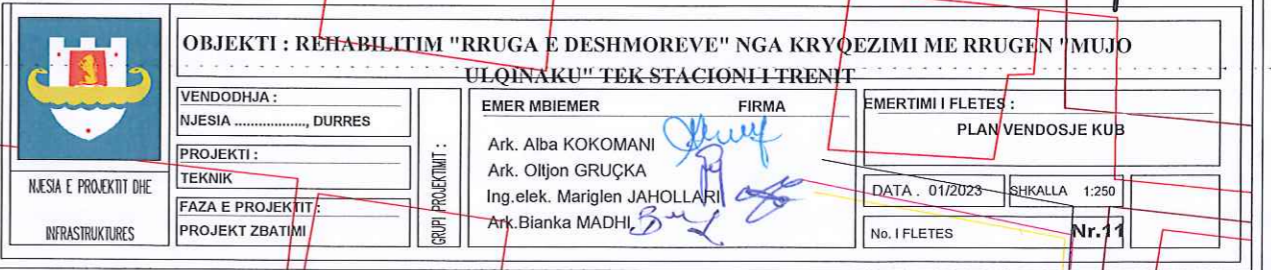 OBJEKTI : REHABILITIM "RRUGA E DESHMOREVE" NGA KRYQEZIMI ME RRUGEN "MUJO
ULQINAKU" TEK STACIONI I TRENIT
NJESIA E PROJEKTIT DHE
INFRASTRUKTURES
VENDODHJA :
NJESIA .................., DURRES
PROJEKTI :
TEKNIK
FAZA E PROJEKTIT :
PROJEKT ZBATIMI
GRUPI PROJEKTIMIT :
EMER MBIEMER FIRMA
Ark. Alba KOKOMANI
Ark. Oltjon GRUÇKA
Ing.elek. Mariglen JAHOLLARI
Ark.Bianka MADHI
EMERTIMI I FLETES :
PLAN VENDOSJE KUB
DATA . 01/2023 SHKALLA 1:250
No. I FLETES Nr.11